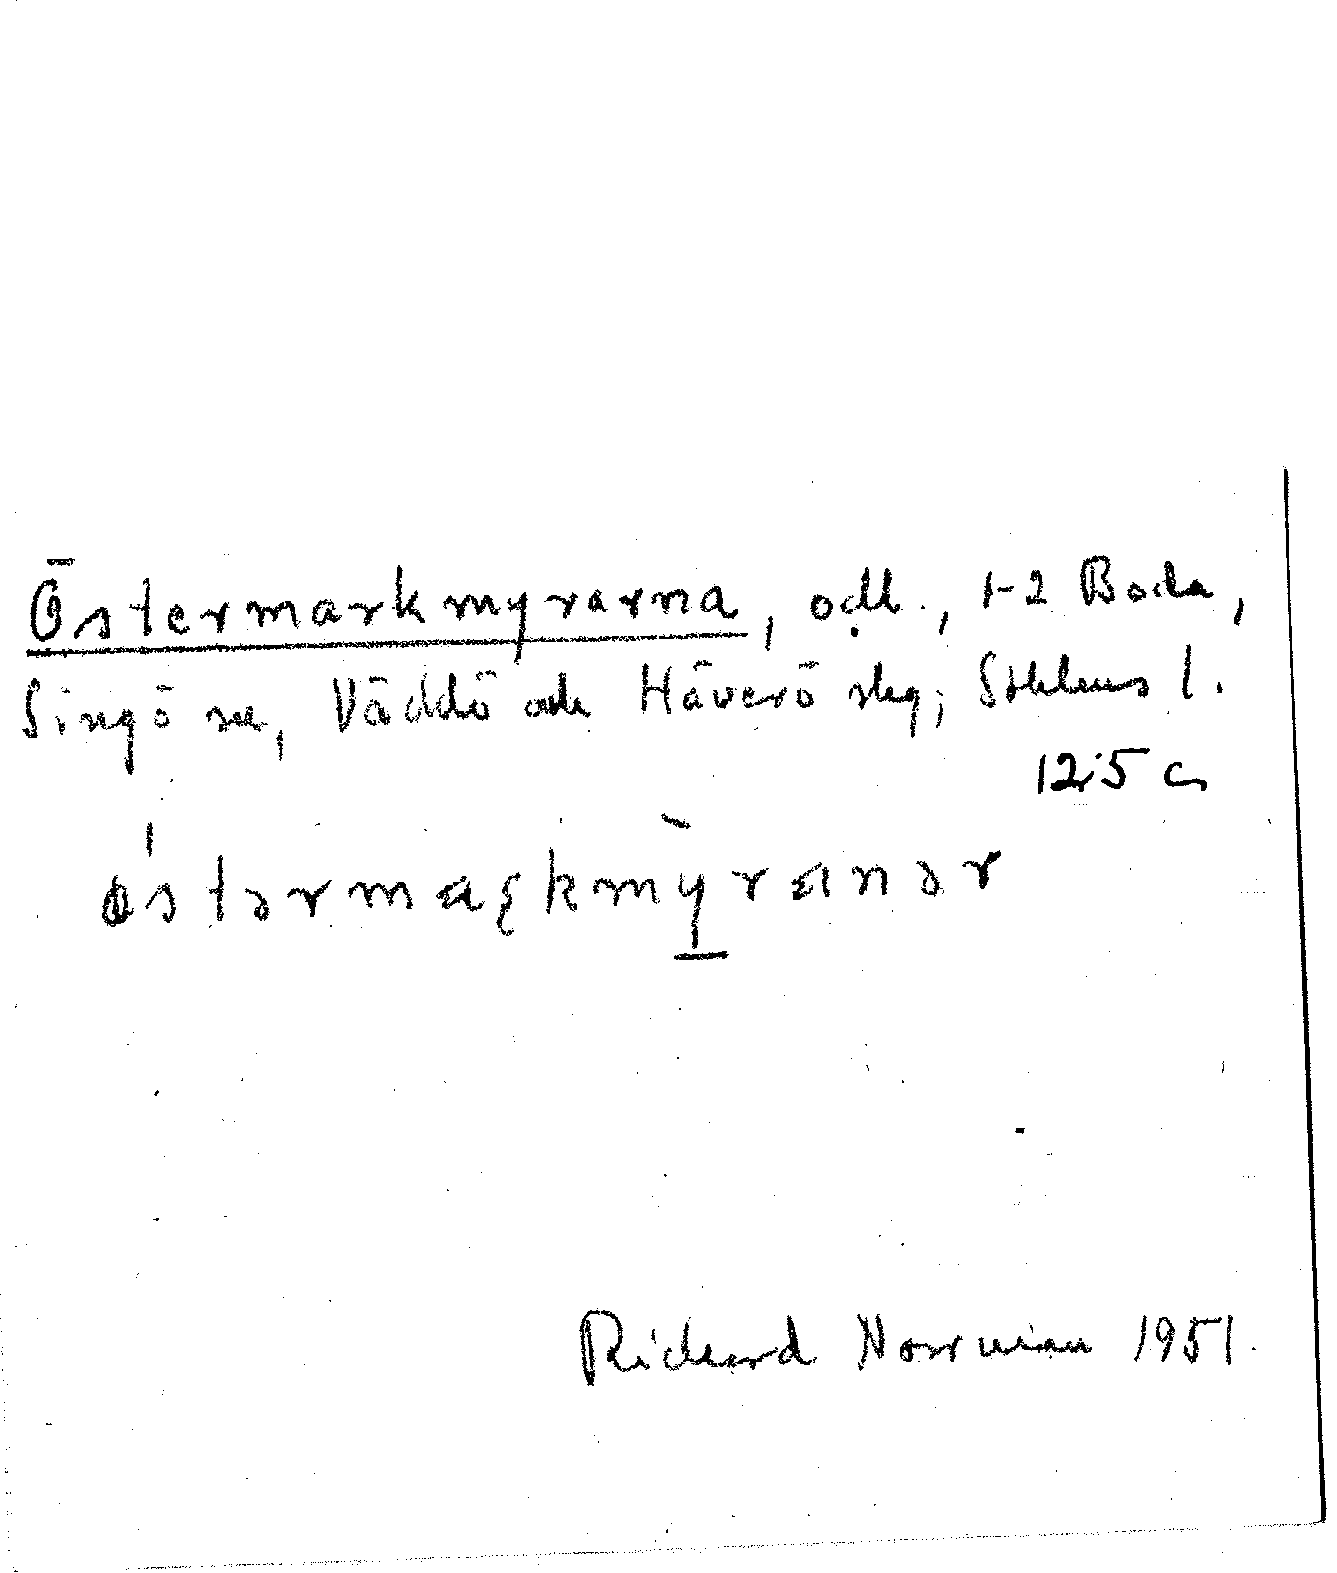 Östermarkmyrarna, odl., 1-2 Boda,
Singö sn, Väddö och Häverö skg; Sthlms l.
12:5 c
Richard Norrman 1951.